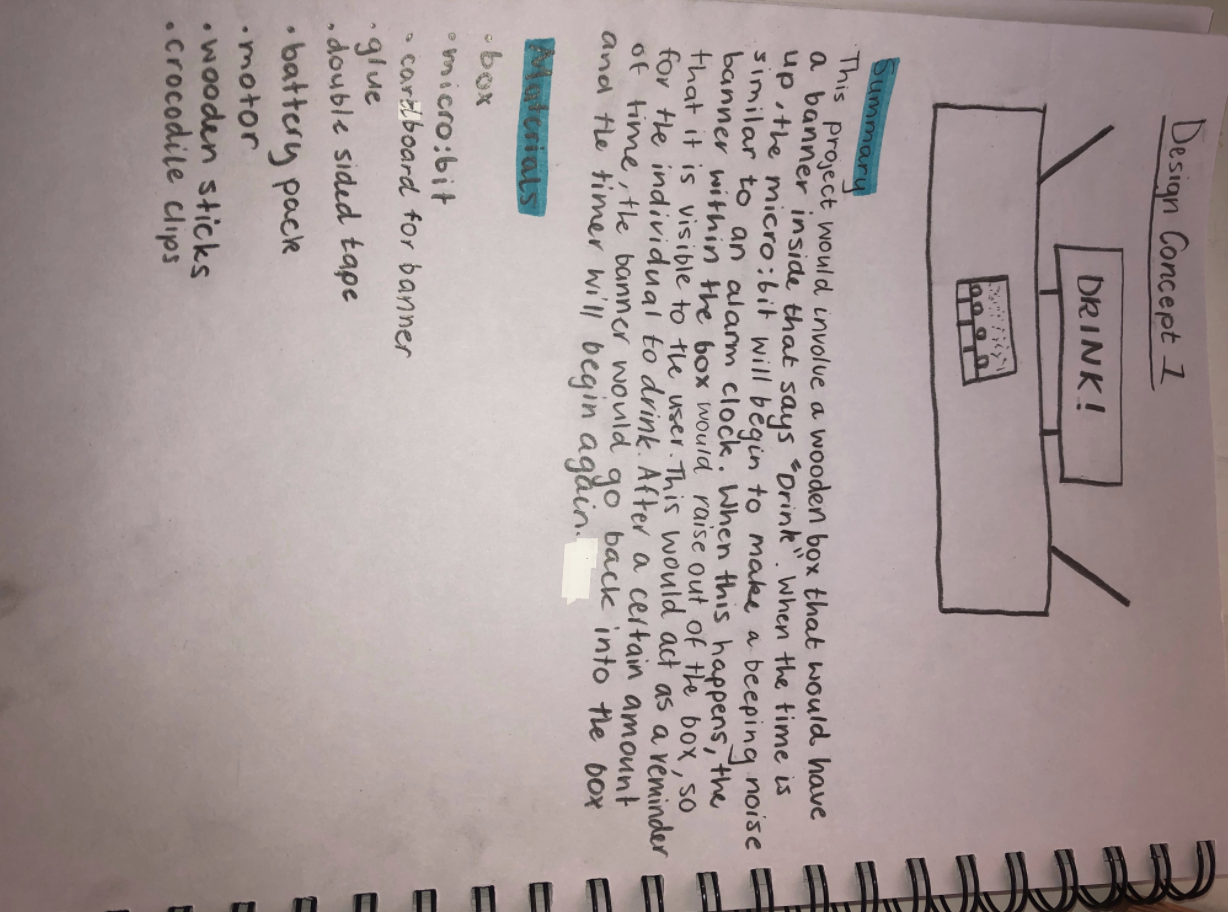 Design Concept 1
DRINK!
Summary
This project would involve a wooden box that would have
a banner inside that says "Drink". When the time is
up, the micro:bit will begin to make a beeping noise
similar to an alarm clock. When this happens, the
banner within the box would raise out of the box, so
that it is visible to the user. This would act as a reminder
for the individual to drink. After a certain amount
of time, the banner would go back into the box
and the timer will begin again.
Materials
• box
• micro:bit
• cardboard for banner
• glue
• double sided tape
• battery pack
• motor
• wooden sticks
• crocodile clips